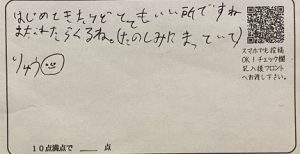 はじめてきたけどとてもいい所ですね
またきたらくるね。(たのしみにまっていて)
リュウ
スマホでも投稿
OK!チェック欄
記入後フロント
へお渡し下さい。
10点満点で 点